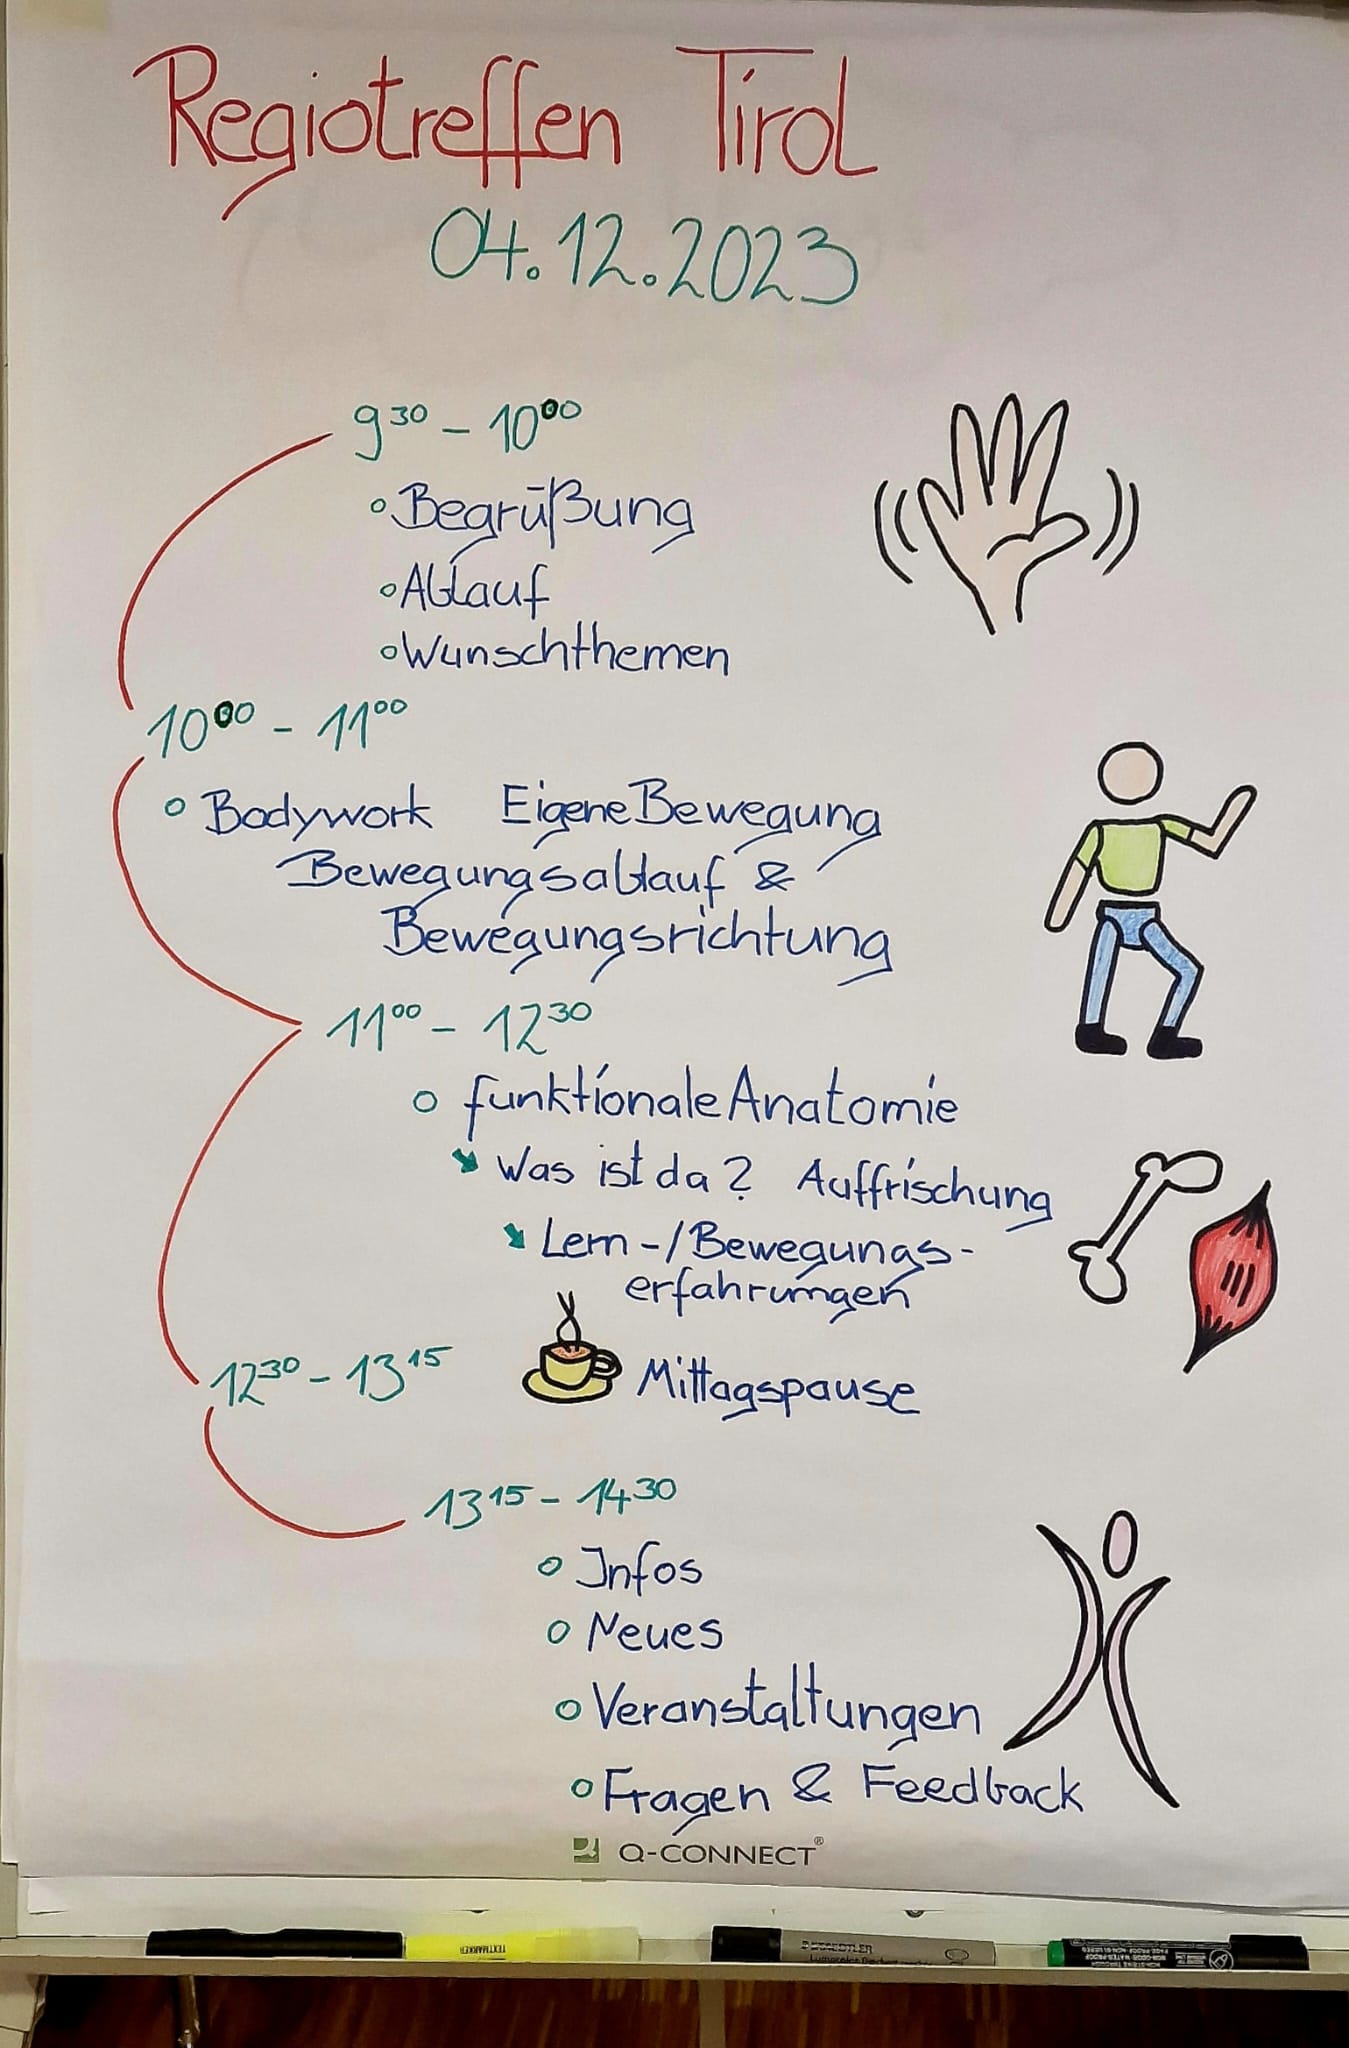 Regiotreffen Tirol
04.12.2023
9³⁰ – 10⁰⁰
Begrüßung
Ablauf
Wunschthemen
10⁰⁰ – 11⁰⁰
Bodywork Eigene Bewegung
Bewegungsablauf &
Bewegungsrichtung
11⁰⁰ – 12³⁰
funktionale Anatomie
Was ist da? Auffrischung
Lern-/Bewegungs-
erfahrungen
12³⁰ – 13¹⁵ Mittagspause
13¹⁵ – 14³⁰
Infos
Neues
Veranstaltungen
Fragen & Feedback
Q-CONNECT®
TEXTMARKER
STAEDTLER